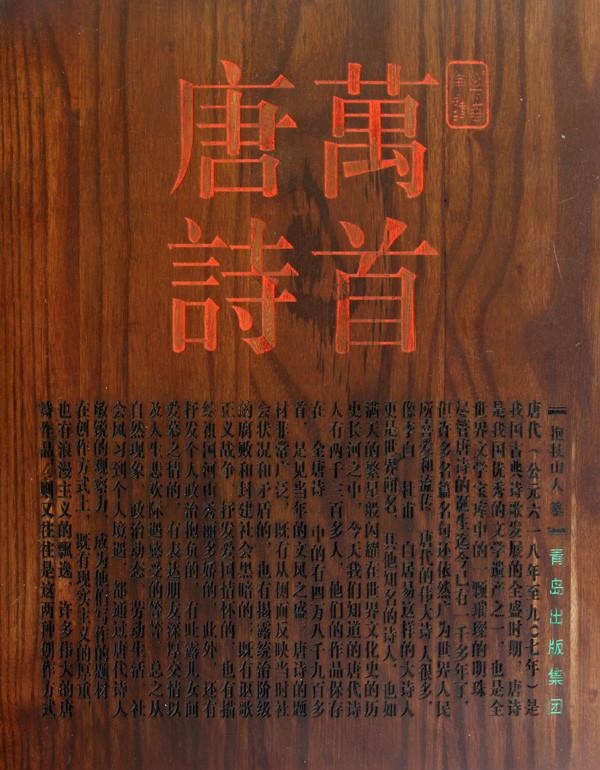 萬首
唐詩
山人
青岛出版集团
唐代（公元六一八年至九〇七年）是
我国古典诗歌发展的全盛时期，唐诗
是我国优秀的文学遗产之一，也是全
世界文学宝库中的一颗璀璨的明珠
尽管唐诗的诞生迄今已有一千多年了，
但许多名篇名句还依然 为世界人民
所喜爱和流传 唐代的伟大诗人很多，
像李白 杜甫 白居易这样的大诗人
更是世界闻名，其他知名的诗人，也如
满天的繁星般闪耀在世界文化史的历
史长河之中，今天我们知道的唐代诗
人有两千三百多人，他们的作品保存
在 全唐诗 中的有四万八千九百多
首，是见当年的文风之盛 唐诗的题
材非常广泛，既有从侧面反映当时社
会状况和矛盾的，也有揭露统治阶级
的腐败和封建社会黑暗的；既有讴歌
正义战争 抒发爱国情怀的，也有描
绘祖国河山秀丽多娇的，此外，还有
抒发个人政治抱负的 有吐露儿女间
爱慕之情的，有表达朋友深厚交情以
及人生悲欢际遇感受的等等 总之从
自然现象 政治动态 劳动生活 社
会风习到个人境遇，都通过唐代诗人
敏锐的观察力 成为他们写作的题材
在创作方式上，既有现实主义的厚重，
也有浪漫主义的飘逸，许多伟大的唐
诗作品，则又往往是这两种创作方式